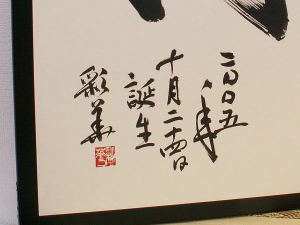 二〇〇五年
十月二十四日
誕生
彩華